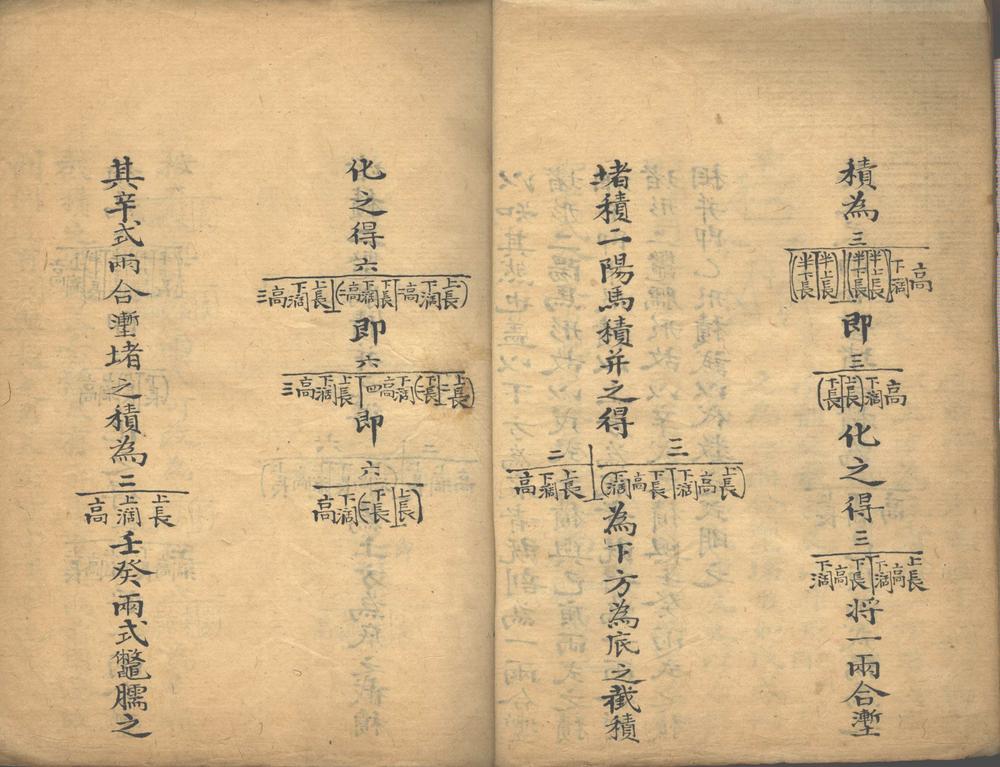 積為三 (半下長 半上長)(半下長 半上長)下濶高 即三 (下長 上長)下濶高 化之得三 下濶高下長 下濶高上長 將一兩合壍
堵積二陽馬積并之得 三 (下濶高下長 下濶高上長) 二 高下濶上長 為下方為底之截積
化之得六 三高下濶上長 (二高下濶下長 二高下濶上長) 即六 三高下濶上長 四高下濶(二下長 二上長) 即六 高下濶(二下長 上長)
其辛式兩合壍堵之積為二 高上濶上長 壬癸兩式鼈臑之